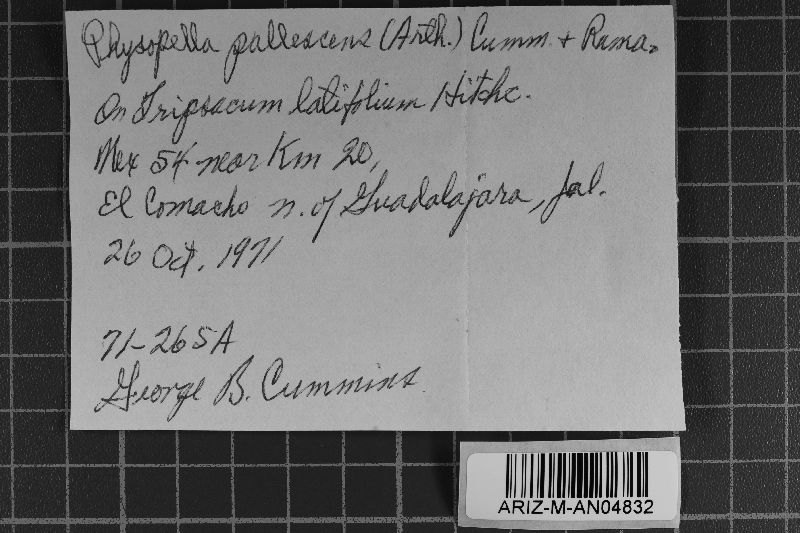 Physopella pallescens (Arth.) Cumm. + Rama.
On Tripsacum latifolium Hitchc.
Mex 54 near Km 20,
El Comacho n. of Guadalajara, Jal.
26 Oct. 1971
71-265A
George B. Cummins
ARIZ-M-AN04832